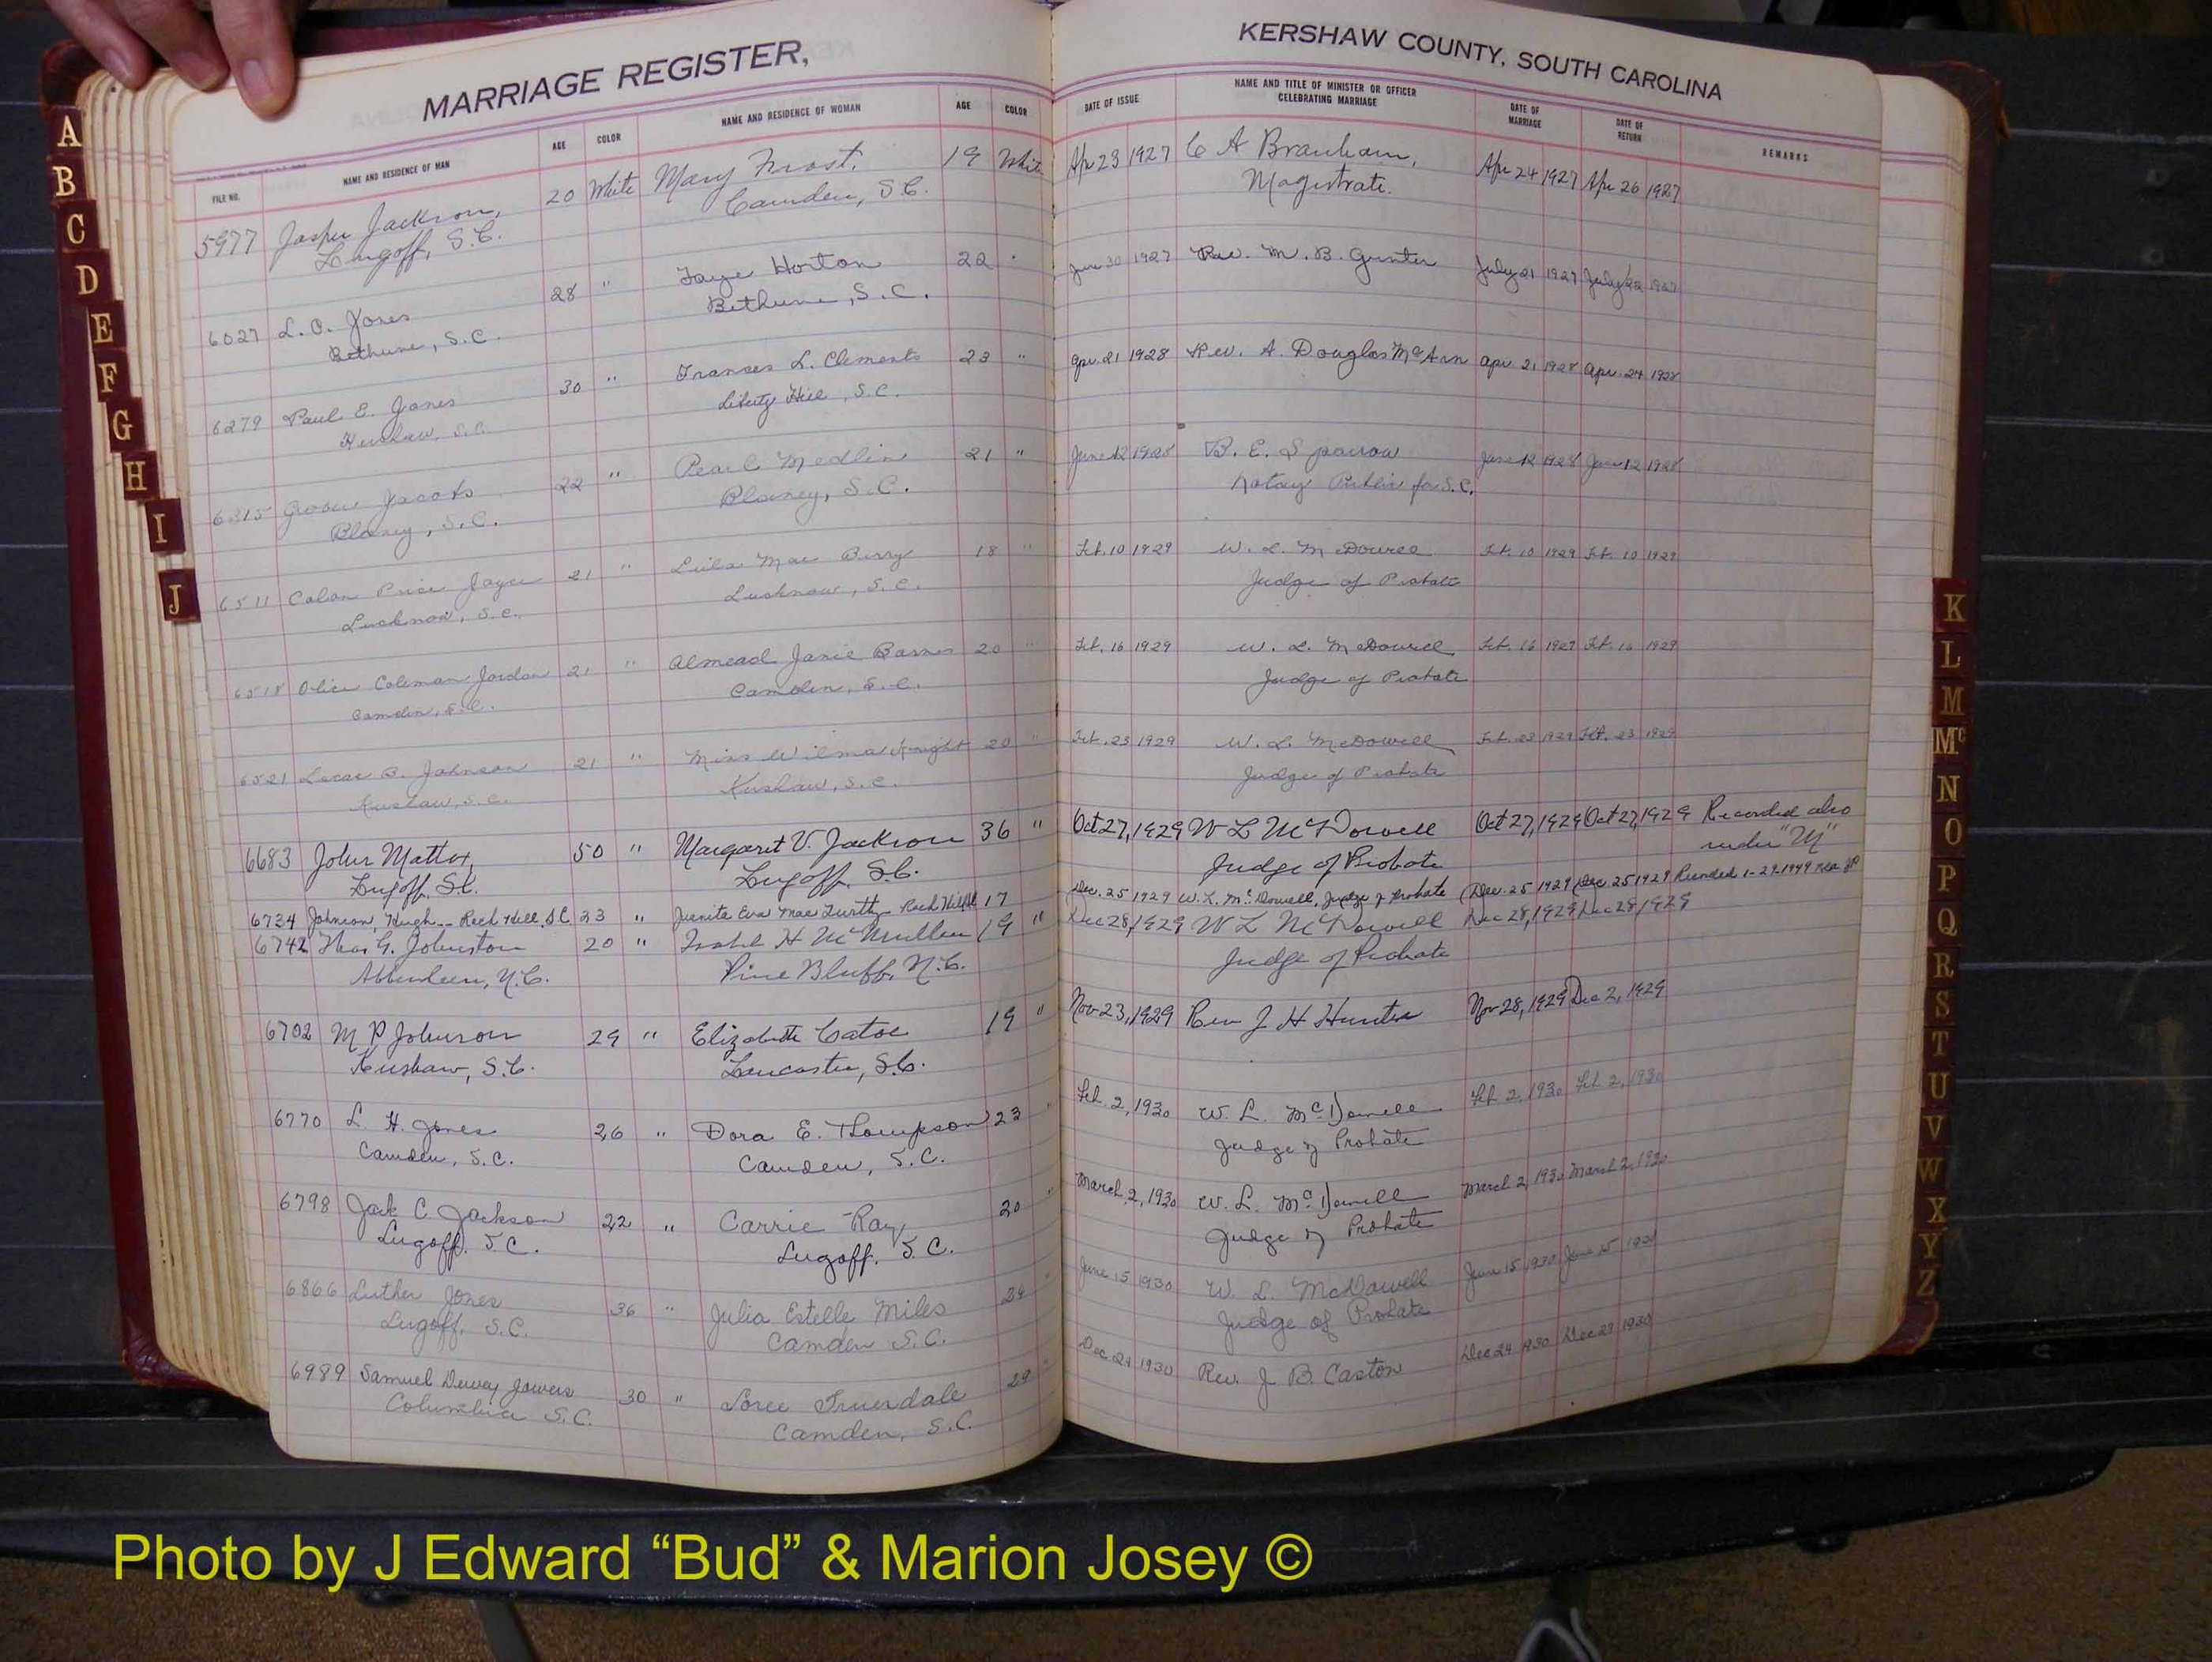 MARRIAGE REGISTER,
KERSHAW COUNTY, SOUTH CAROLINA
FILE NO. NAME AND RESIDENCE OF MAN AGE COLOR NAME AND RESIDENCE OF WOMAN AGE COLOR DATE OF ISSUE NAME AND TITLE OF MINISTER OR OFFICER CELEBRATING MARRIAGE DATE OF MARRIAGE DATE OF RETURN REMARKS
5977 Jasper Jackson, 20 White Mary Frost, 19 White Apr 23 1927 C A Branham, Apr 24 1927 Apr 26 1927
Lugoff, S.C. Camden, S.C. Magistrate.
6027 L. O. Jones 28 " Faye Horton 22 " June 30 1927 Rev. M. B. Gunter July 21 1927 July 22 1927
Bethune, S.C. Bethune, S.C.
6279 Paul E. Jones 30 " Frances L. Clements 23 " Apr. 21 1928 Rev. A. Douglas Apr. 21 1928 Apr. 24 1928
Kershaw, S.C. Liberty Hill, S.C.
6315 Grover Jacobs 22 " Pearl Medlin 21 " June 12 1928 B. E. Sparrow June 12 1928 June 12 1928
Blaney, S.C. Blaney, S.C. Notary Public for S.C.
6511 Colon Price 21 " Lula Mae Berry 18 " Feb. 10 1929 W. L. McDowell Feb. 10 1929 Feb. 10 1929
Lucknow, S.C. Lucknow, S.C. Judge of Probate
6518 Coleman Jordan 21 " Almead Janie Barnes 20 " Feb. 16 1929 W. L. McDowell Feb. 16 1929 Feb. 16 1929
Camden, S.C. Camden, S.C. Judge of Probate
6521 Lucas B. Johnson 21 " Miss Wilma Knight 20 " Feb. 23 1929 W. L. McDowell Feb. 23 1929 Feb. 23 1929
Kershaw, S.C. Kershaw, S.C. Judge of Probate
6683 John Mattox, 50 " Margaret V. Jackson 36 " Oct 27, 1929 W L McDowell Oct 27, 1929 Oct 27, 1929 Recorded also
Lugoff, S.C. Lugoff, S.C. Judge of Probate under "M"
6734 Johnson, Hugh -- Rock Hill, S.C. 23 " Juanita Eva Mae Rock Hill 17 Dec. 25 1929 W. L. McDowell, Judge of Probate Dec. 25 1929 Dec. 25 1929 Recorded 1-29-1949
6742 Thos. G. Johnston 20 " Isabel H McMullen 19 " Dec 28, 1929 W L McDowell Dec 28, 1929 Dec 28, 1929
Abberdeen, N.C. Pine Bluff, N.C. Judge of Probate
6702 M P Johnson 29 " Elizabeth Catoe 19 " Nov 23, 1929 Rev J H Hunter Nov 28, 1929 Dec 2, 1929
Kershaw, S.C. Lancaster, S.C.
6770 L. H. Jones 26 " Dora E. Thompson 23 " Feb. 2, 1930 W. L. McDowell Feb 2, 1930 Feb 2, 1930
Camden, S.C. Camden, S.C. Judge of Probate
6798 Jack C. Jackson 22 " Carrie Ray, 20 " March 2, 1930 W. L. McDowell March 2, 1930 March 2, 1930
Lugoff, S.C. Lugoff, S.C. Judge of Probate
6866 Luther Jones 36 " Julia Estelle Miles June 15 1930 W. L. McDowell June 15 1930 June 15 1930
Lugoff, S.C. Camden S.C. Judge of Probate
6989 Samuel Dewey Jowers 30 " Loree Truesdale 29 Dec. 24 1930 Rev. J. B. Caston Dec 24 1930 Dec 29 1930
Columbia S.C. Camden, S.C.
A
B
C
D
E
F
G
H
I
J
K
L
M
Mc
N
O
P
Q
R
S
T
U
V
W
X
Y
Z
Photo by J Edward “Bud” & Marion Josey ©